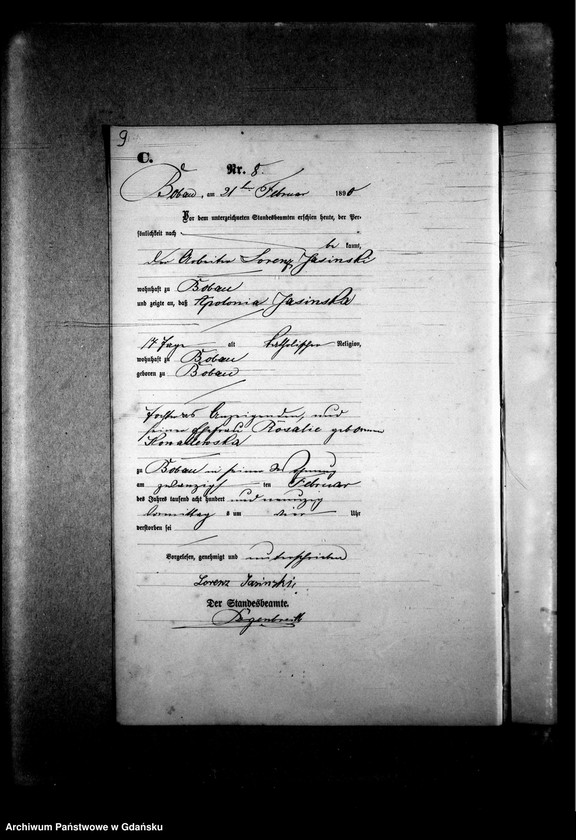 9
C.
Nr. 8.
Bobau, am 21ten Februar 1890
Vor dem unterzeichneten Standesbeamten erschien heute, der Per-
sönlichkeit nach
be kannt,
der Arbeiter Lorenz Jasinski
wohnhaft zu Bobau
und zeigte an, daß Apolonia Jasinska
17 Tage alt katholischer Religion,
wohnhaft zu Bobau
geboren zu Bobau
Tochter des Anzeigenden, und
seiner Ehefrau Rosalie geborenen
zu Bobau in seiner Wohnung
am zwanzigsten Februar
des Jahres tausend acht hundert und neunzig
Vormittags um vier Uhr
verstorben sei
Vorgelesen, genehmigt und unterschrieben
Lorenz Jasinski
Der Standesbeamte.
Archiwum Państwowe w Gdańsku